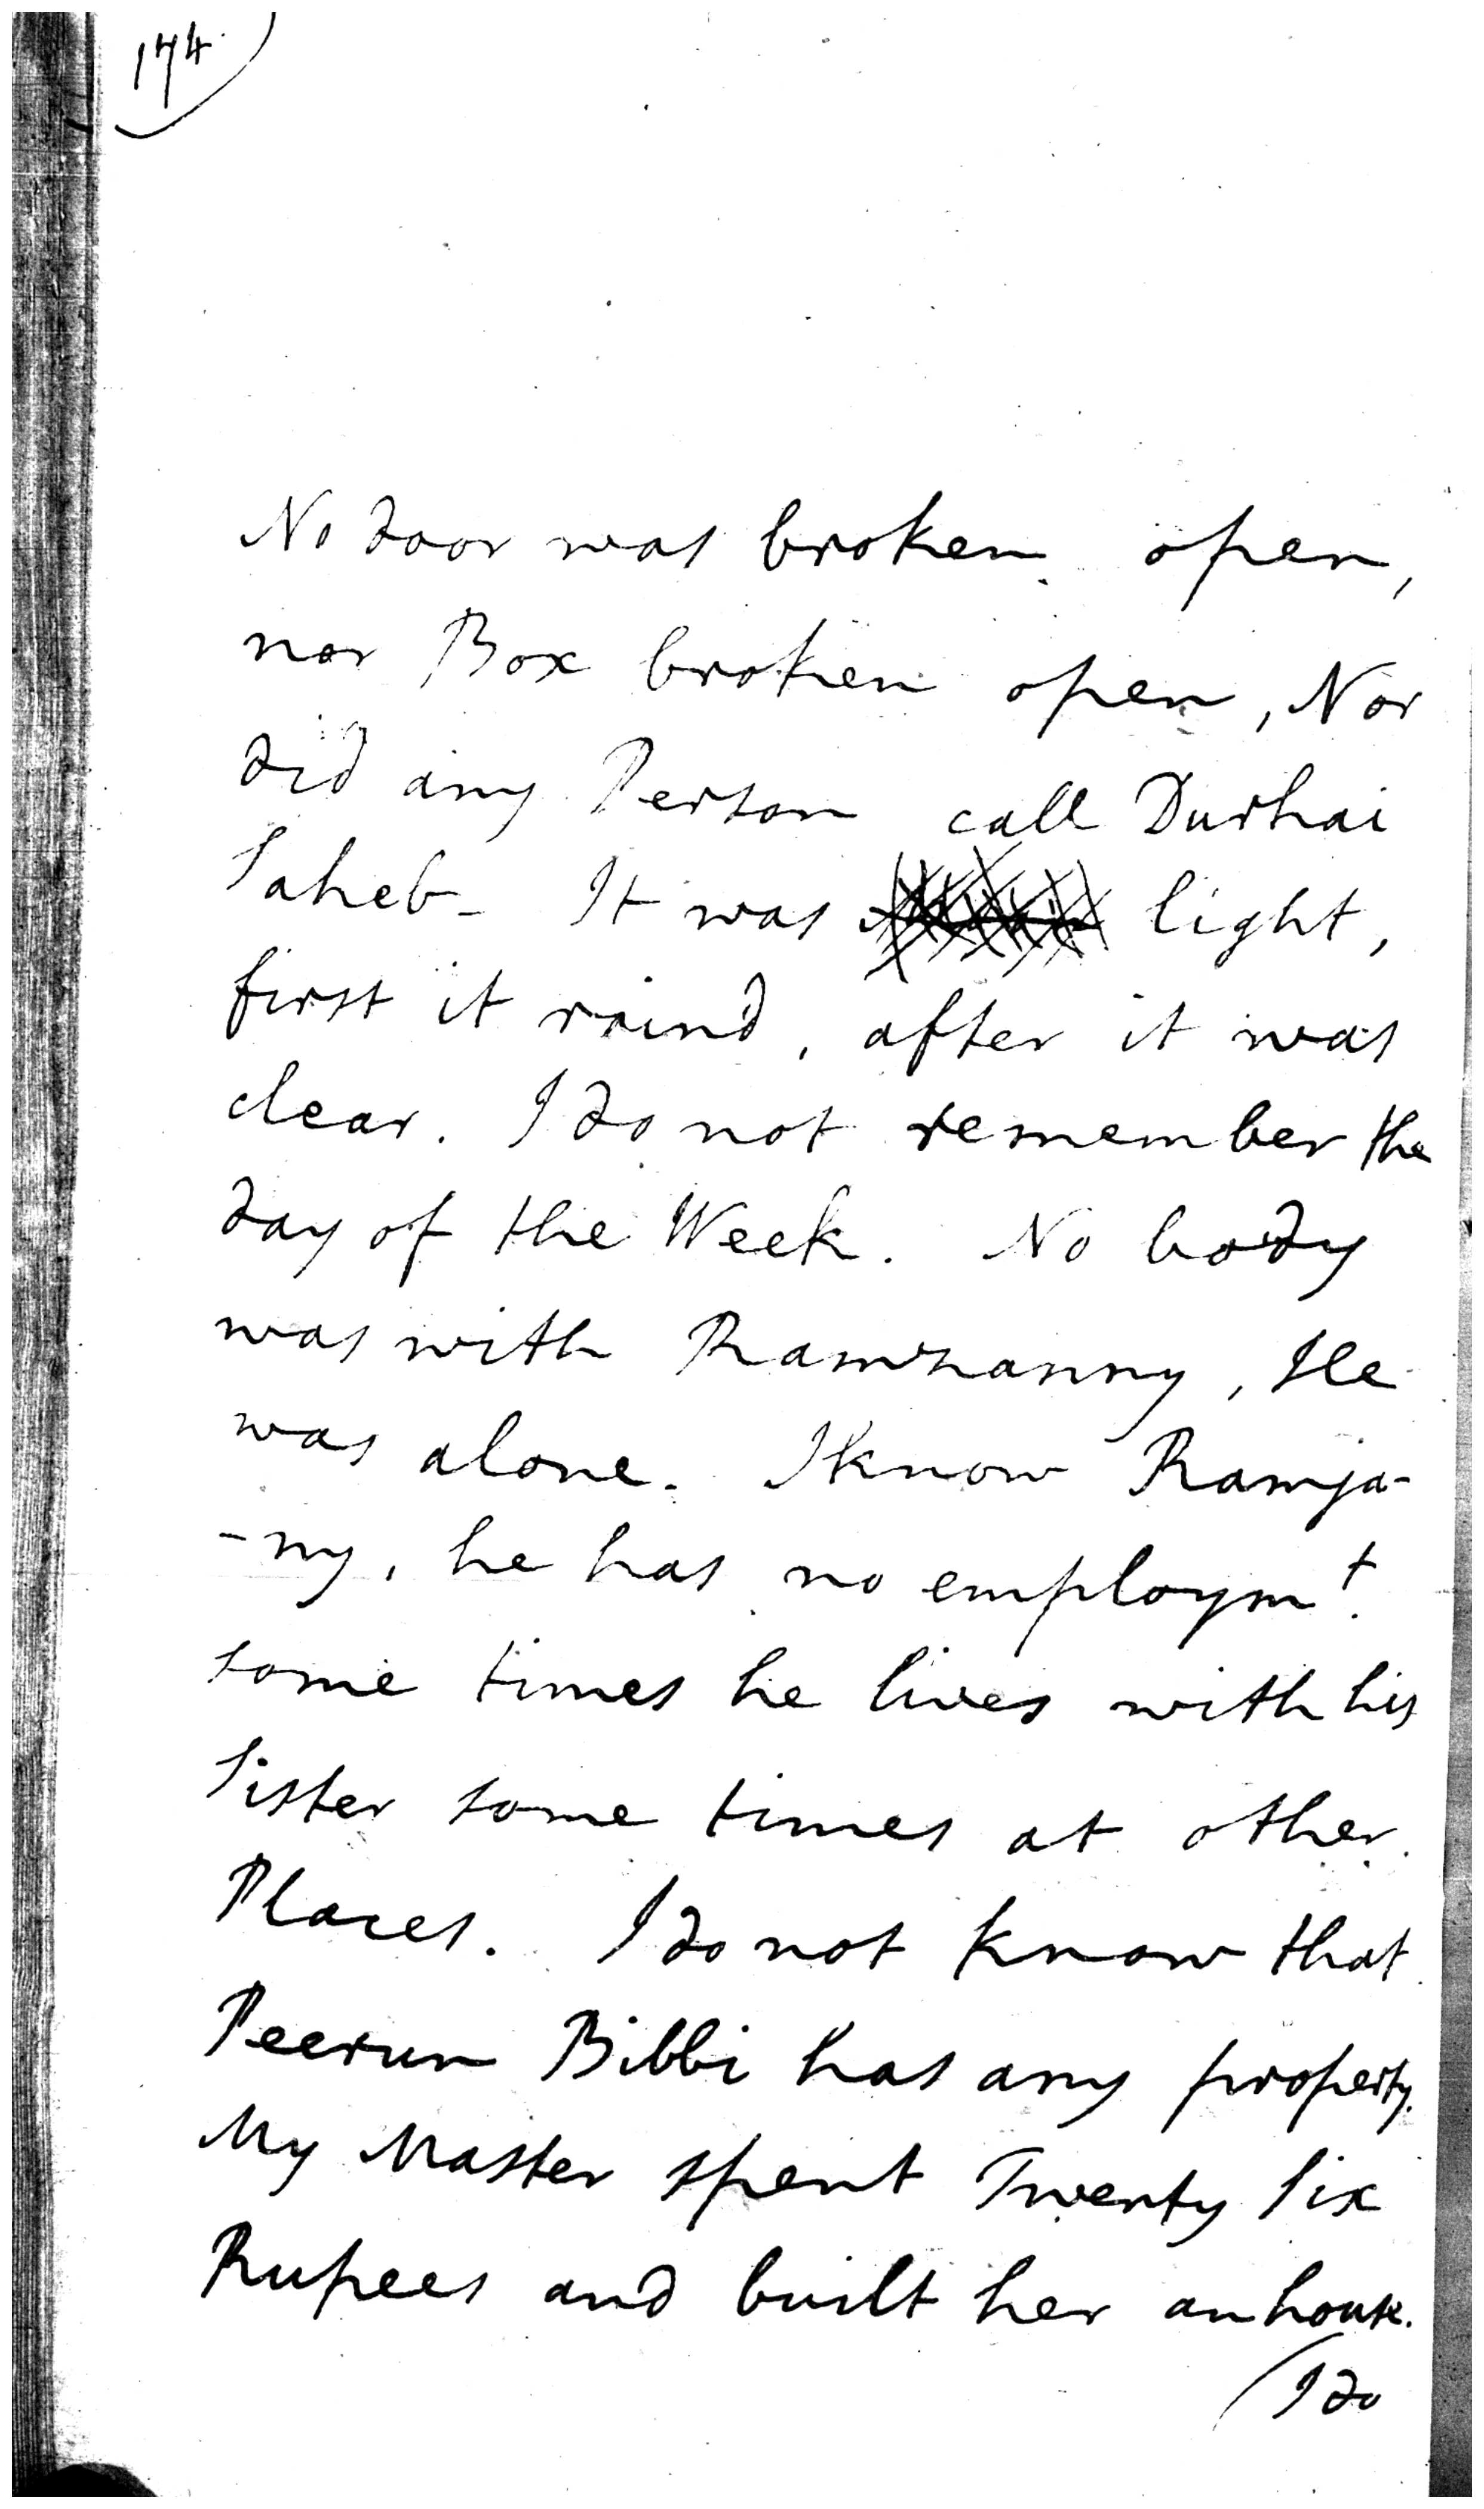 174
No door was broken open,
nor Box broken open, Nor
did any Person call Durhai
Saheb_ It was light,
first it raind, after it was
clear. I do not remember the
day of the Week. No body
was with Ramzanny, He
was alone. I know Ramja-
-ny, he has no employmt.
some times he lives with his
Sister some times at other
Places. I do not know that
Peerun Bibbi has any property.
My Master spent Twenty Six
Rupees and built her an house.
(I do